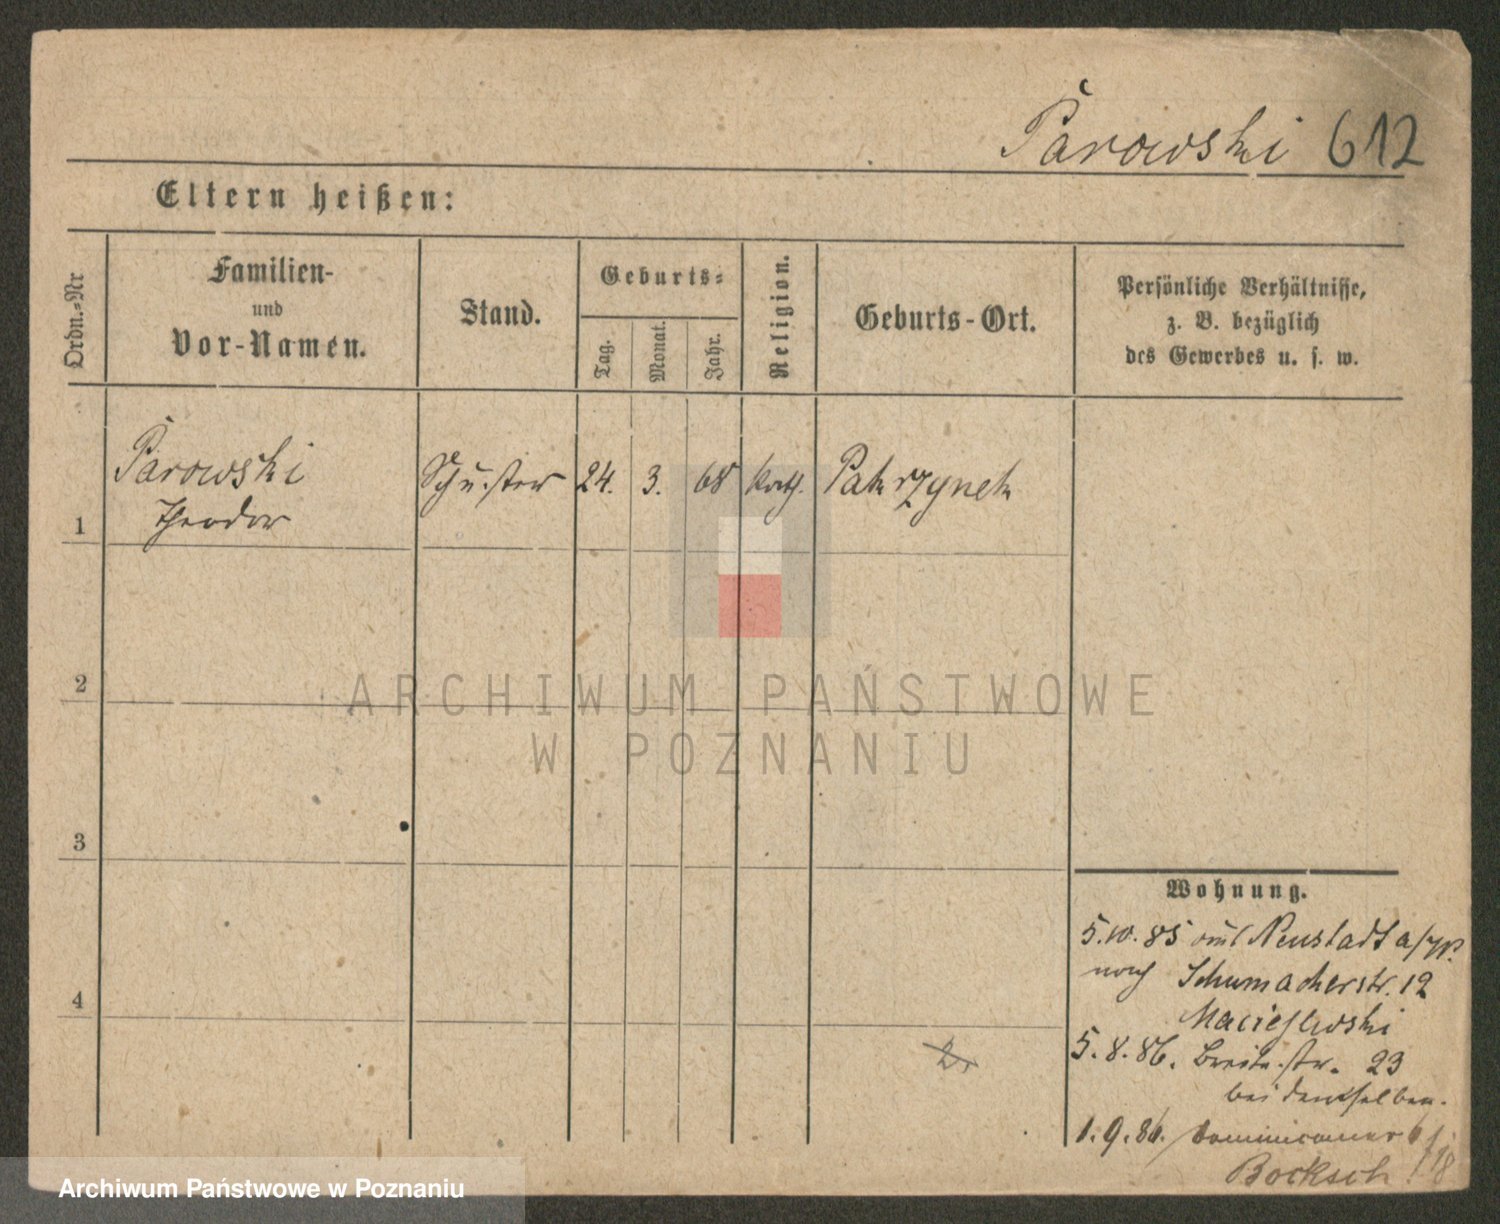 Parowski 612
Eltern heißen:
Ordn.-Nr
Familien-
und
Vor-Namen.
Stand.
Geburts-
Tag.
Monat.
Jahr.
Religion.
Geburts-Ort.
Persönliche Verhältnisse,
z. B. bezüglich
des Gewerbes u. s. w.
1
Parowski
Theodor
Schuster
24.
3.
68
kath.
2
3
4
Wohnung.
5.10.85 aus Neustadt a/W.
nach Schumacherstr. 12
Maciejewski
5.8.86. Breite-str. 23
bei demselben.
1.9.86. Dominicaner
Bocksch
ARCHIWUM PAŃSTWOWE
W POZNANIU
Archiwum Państwowe w Poznaniu